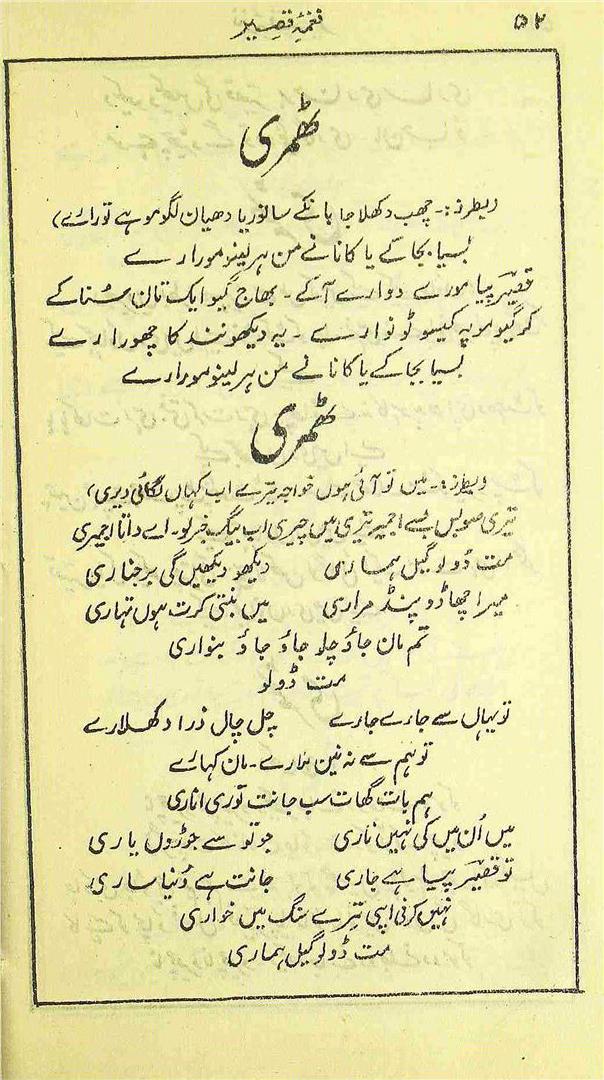 ۵۲
نغمۂ قصیر
ٹھمری
(بطرز:۔ چھب دکھلا جا بانکے سانوریا دھیان لگو موہے تورا رے)
بسیا بجا کے یا کانا نے من ہر لینو مورا رے
قصیر پیا مورے دوارے آکے ۔ بھاج گیو ایک تان سُنا کے
کر گیو موپہ کیسو ٹونوا رے ۔ یہ دیکھو نند کا چھورا رے
بسیا بجا کے یا کانا نے من ہر لینو مورا رے
ٹھمری
(بطرز:۔ میں تو آئی ہوں خواجہ تیرے اب کہاں لگائی دیری)
تیری صورت بسے اجمیر تیری میں چیری اب بیگ خبر لو۔ اے داتا اجمیری
مت ڈولو گیل ہماری دیکھو دیکھیں گی برجناری
میرا چھاڈو پنڈ مراری میں بنتی کرت ہوں تہاری
تم مان جاؤ چلو جاؤ جاؤ بنواری
مت ڈولو
تو یہاں سے جا رے جا رے چل چال ذرا دکھلا رے
تو ہم سے نہ نین ملا رے ۔ مان کہا رے
ہم بات گھات سب جانت توری اناری
میں اُن میں کی نہیں ناری جو تو سے جوڑوں یاری
تو قصیر پیا ہے جاری جانت ہے دُنیا ساری
نہیں کرنی اپی تیرے سنگ میں خواری
مت ڈولو گیل ہماری